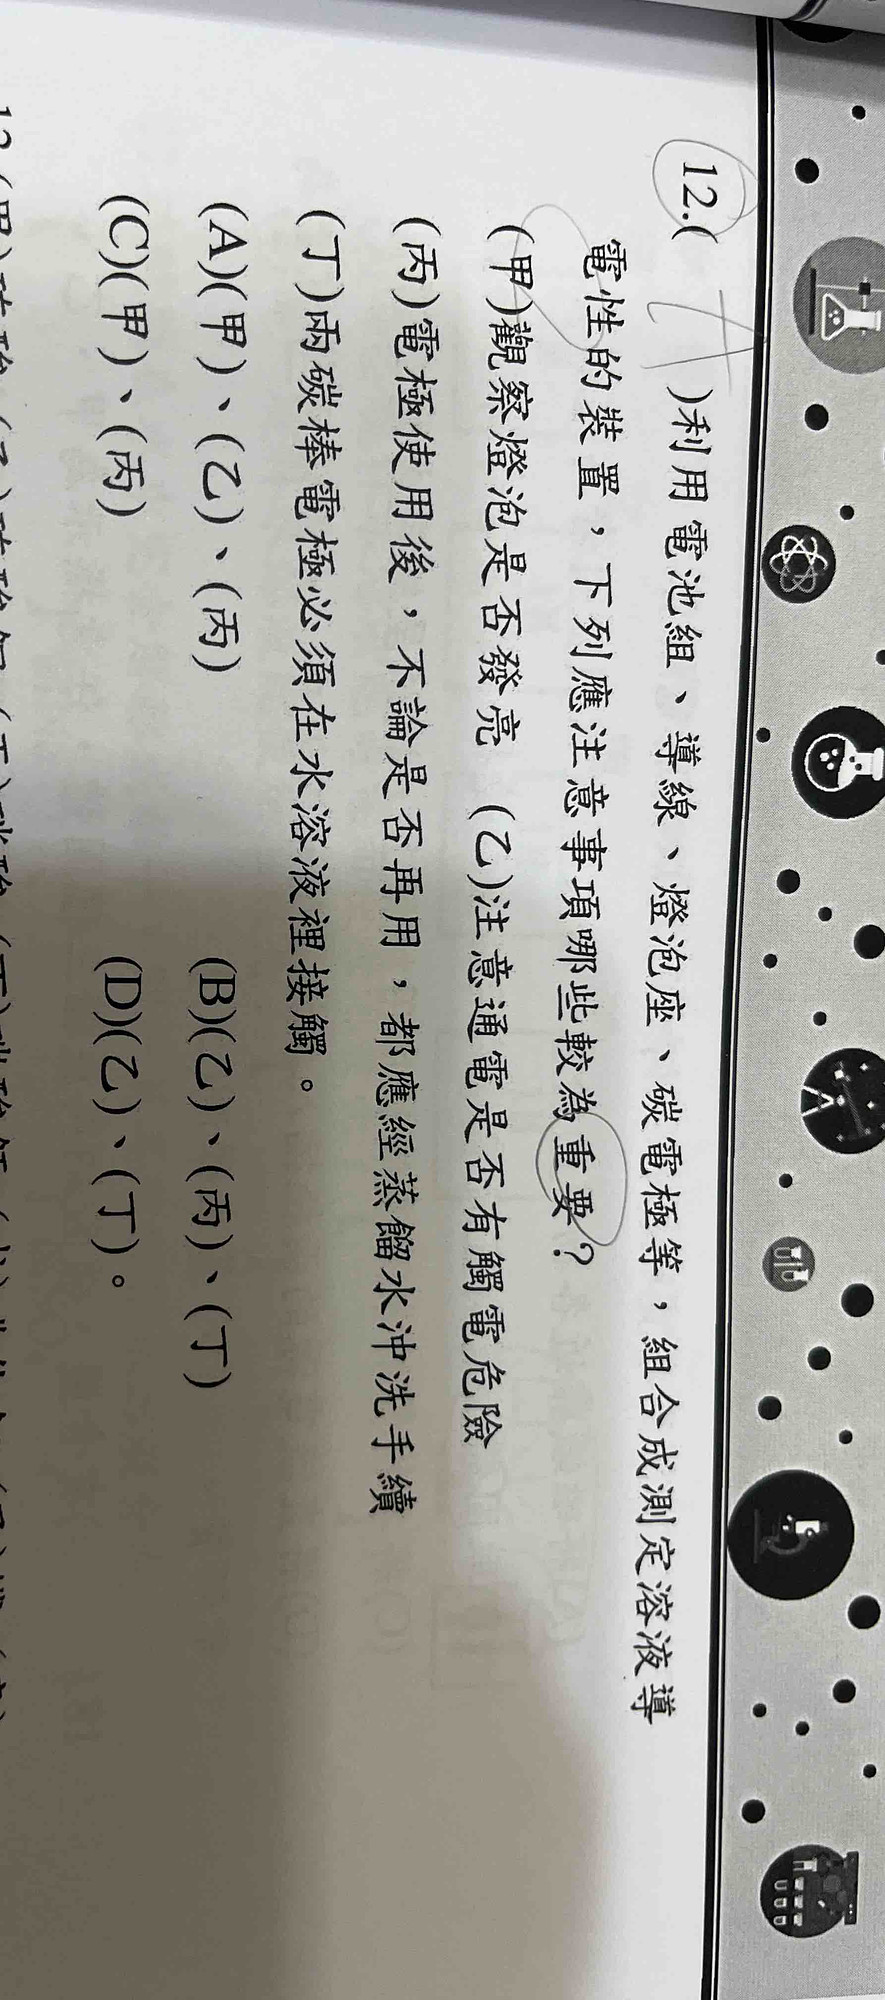 12.( )利用電池組、導線、燈泡座、碳電極等，組合成測定溶液導
電性的裝置，下列應注意事項哪些較為重要？
(甲)觀察燈泡是否發亮 (乙)注意通電是否有觸電危險
(丙)電極使用後，不論是否再用，都應經蒸餾水沖洗手續
(丁)兩碳棒電極必須在水溶液裡接觸。
(A)(甲)、(乙)、(丙) (B)(乙)、(丙)、(丁)
(C)(甲)、(丙) (D)(乙)、(丁)。